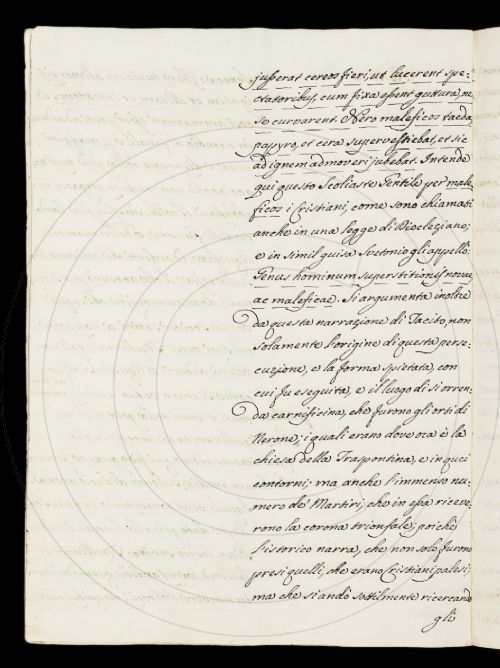 jusserat cereos fieri, ut lucerent spe-
ctatoribus, cum fixa essent guttura, ne
se curvarent. Nero maleficos taeda,
papyro, et cera supervestiebat, et sic
ad ignem admoveri jubebat. Intende
qui questo Scoliaste Gentile per male-
ficos i Cristiani, come sono chiamati
anche in una legge di Diocleziano;
e in simil guisa Svetonio gli appellò:
Genus hominum superstitionis novae,
ac maleficae. Si argumenta inoltre
da questa narrazione di Tacito, non
solamente l'origine di questa perse-
cuzione, e la forma spietata, con
cui fu eseguita, e il luogo di sì orren-
da carnificina, che furono gli orti di
Nerone; i quali erano dove ora è la
chiesa della Traspontina, e in quei
contorni; ma anche l'immenso nu-
mero de' Martiri, che in essa riceve-
rono la corona trionfale; poichè
l'istorico narra, che non solo furono
presi quelli, che erano Cristiani palesi;
ma che si andò sottilmente ricercando
gli